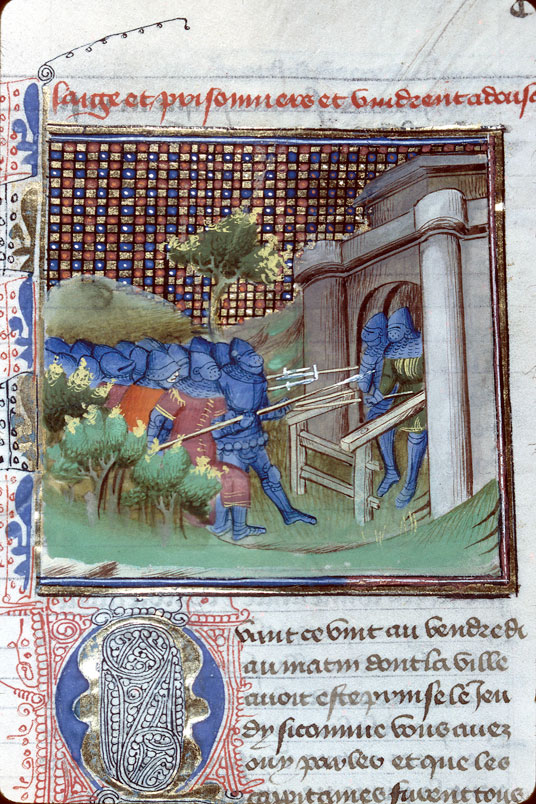 large et prisonniere et vindrent a dous
Quant ce vint au vendredi
au matin dont la ville
auoit este prinse le Jeu
dy si comme vous auez
ouy parler et que les
capitaines furent tous